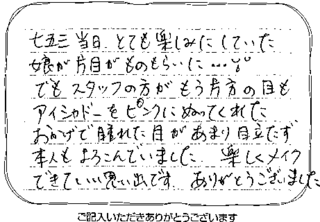 七五三 当日 とても楽しみにしていた
娘が片目がものもらいに…
でもスタッフの方がもう片方の目も
アイシャドーをピンクにぬってくれた
おかげで腫れた目があまり目立たず
本人もよろこんでいました 楽しくメイク
できていい思い出です ありがとうございました
ご記入いただきありがとうございます